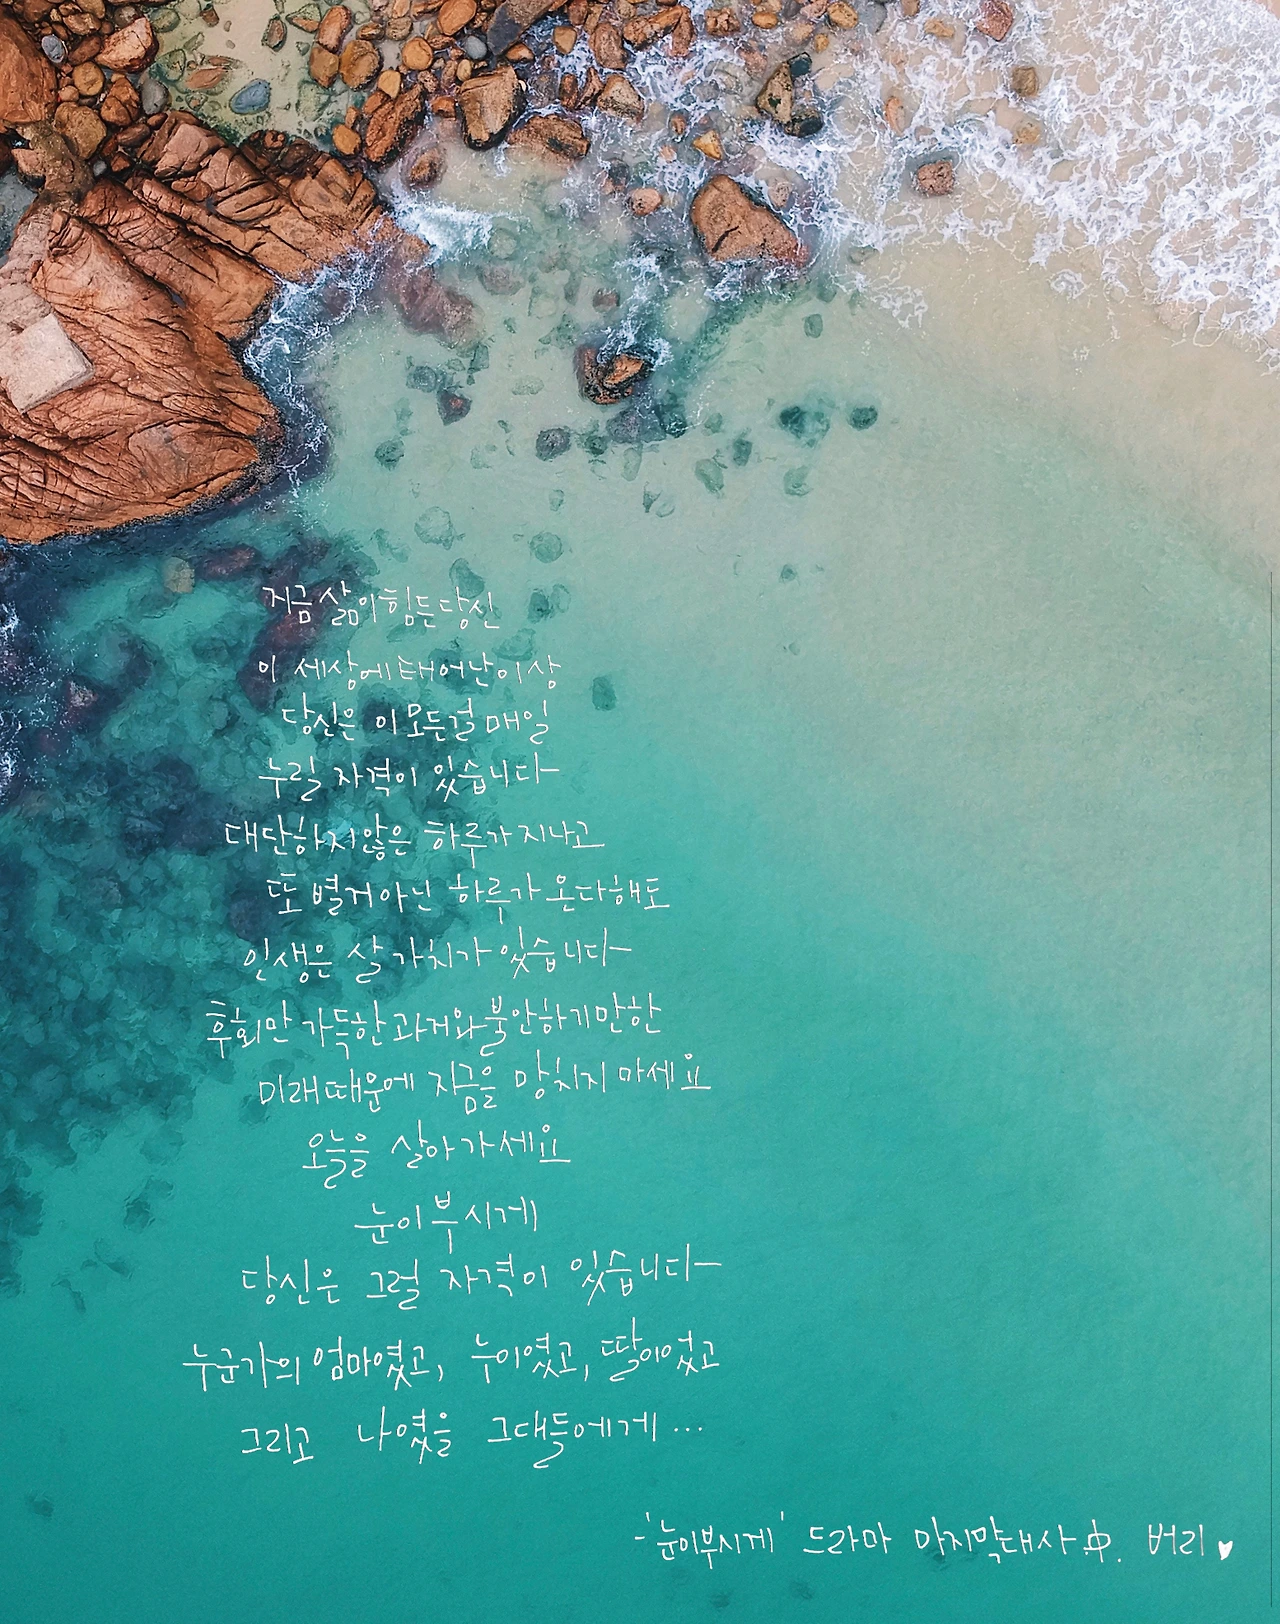 지금 삶이 힘든 당신
이 세상에 태어난 이상
당신은 이 모든걸 매일
누릴 자격이 있습니다
대단하지않은 하루가 지나고
또 별거 아닌 하루가 온다해도
인생은 살 가치가 있습니다
후회만 가득한 과거와 불안하기만한
미래때문에 지금을 망치지 마세요
오늘을 살아가세요
눈이 부시게
당신은 그럴 자격이 있습니다
누군가의 엄마였고, 누이였고, 딸이었고
그리고 나였을 그대들에게...
-'눈이부시게' 드라마 마지막대사 中. 버리♥